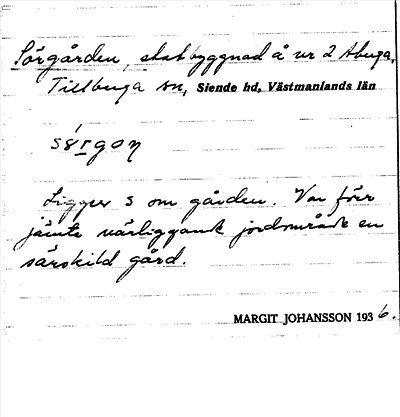 Sörgården, statbyggnad å nr 2 Åberga,
Tillberga sn, Siende hd, Västmanlands län
Ligger S om gården. Var förr
jämte närliggande jordområde en
särskild gård.
MARGIT JOHANSSON 1936.